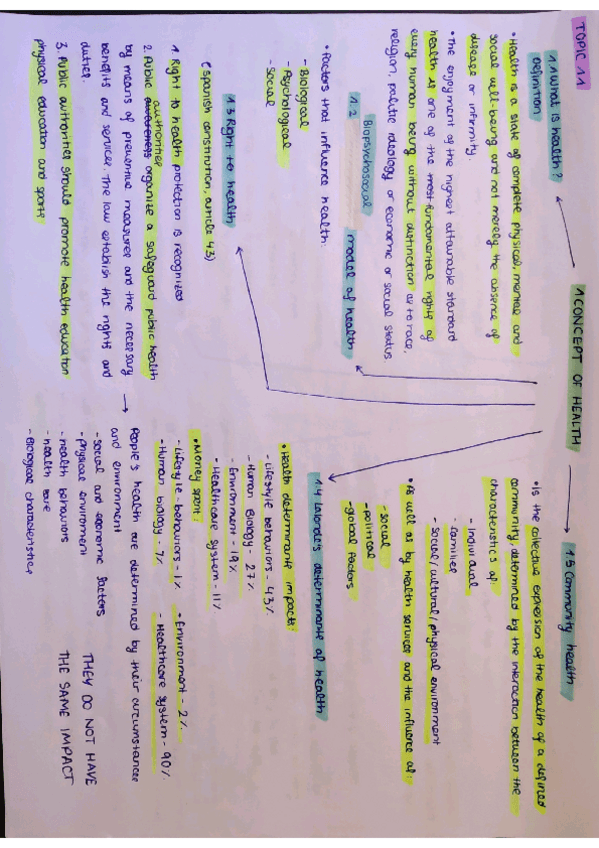 TOPIC 11
1 CONCEPT OF HEALTH
1.1 What is health?
Definition
• Health is a state of complete physical, mental and
social well-being and not merely the absence of
disease or infirmity.
• The enjoyment of the highest attainable standard
health is one of the most fundamental rights of
every human being without distinction as to race,
religion, politic ideology or economic or social status.
1.2 Biopsychosocial model of health
• Factors that influence health:
- Biological
- Psychological
- Social
1.3 Right to health
(Spanish constitution, article 43)
1. Right to health protection is recognized
authorities
2. Public awareness organize a safeguard public health
by means of preventive measures and the necessary
benefits and services. The law establish the rights and
duties.
3. Public authorities should promote health education
physical education and sports
1.5 Community health
• Is the collective expression of the health of a defined
community, determined by the interaction between the
characteristics of:
- individual
- families
- social / cultural / physical environment
• As well as by health services and the influence of:
- social
- political
- global factors
1.4 Lalonde's determinants of health
• Health determinants impact:
- Lifestyle behaviors - 43%
- Human Biology - 27%
- Environment - 19%
- Healthcare system - 11%
• Money spent:
- Lifestyle behaviors - 1%
- Human biology - 7%
- Environment - 2%
- Healthcare system - 90%
→ People's health are determined by their circumstances
and environment
- social and economic factors
- physical environment
- health behaviors
- health care
- Biological characteristics
THEY DO NOT HAVE
THE SAME IMPACT